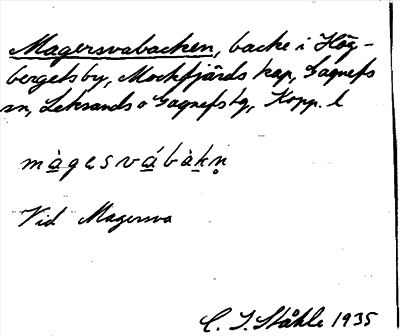 Magersvabacken, backe i Hög-
bergets by, Mockfjärds kap, Gagnefs
sn, Leksands o Gagnefs tg, Kopp. l
màgesvábàkn̥
Vid Magersva
C. I. Ståhle 1935